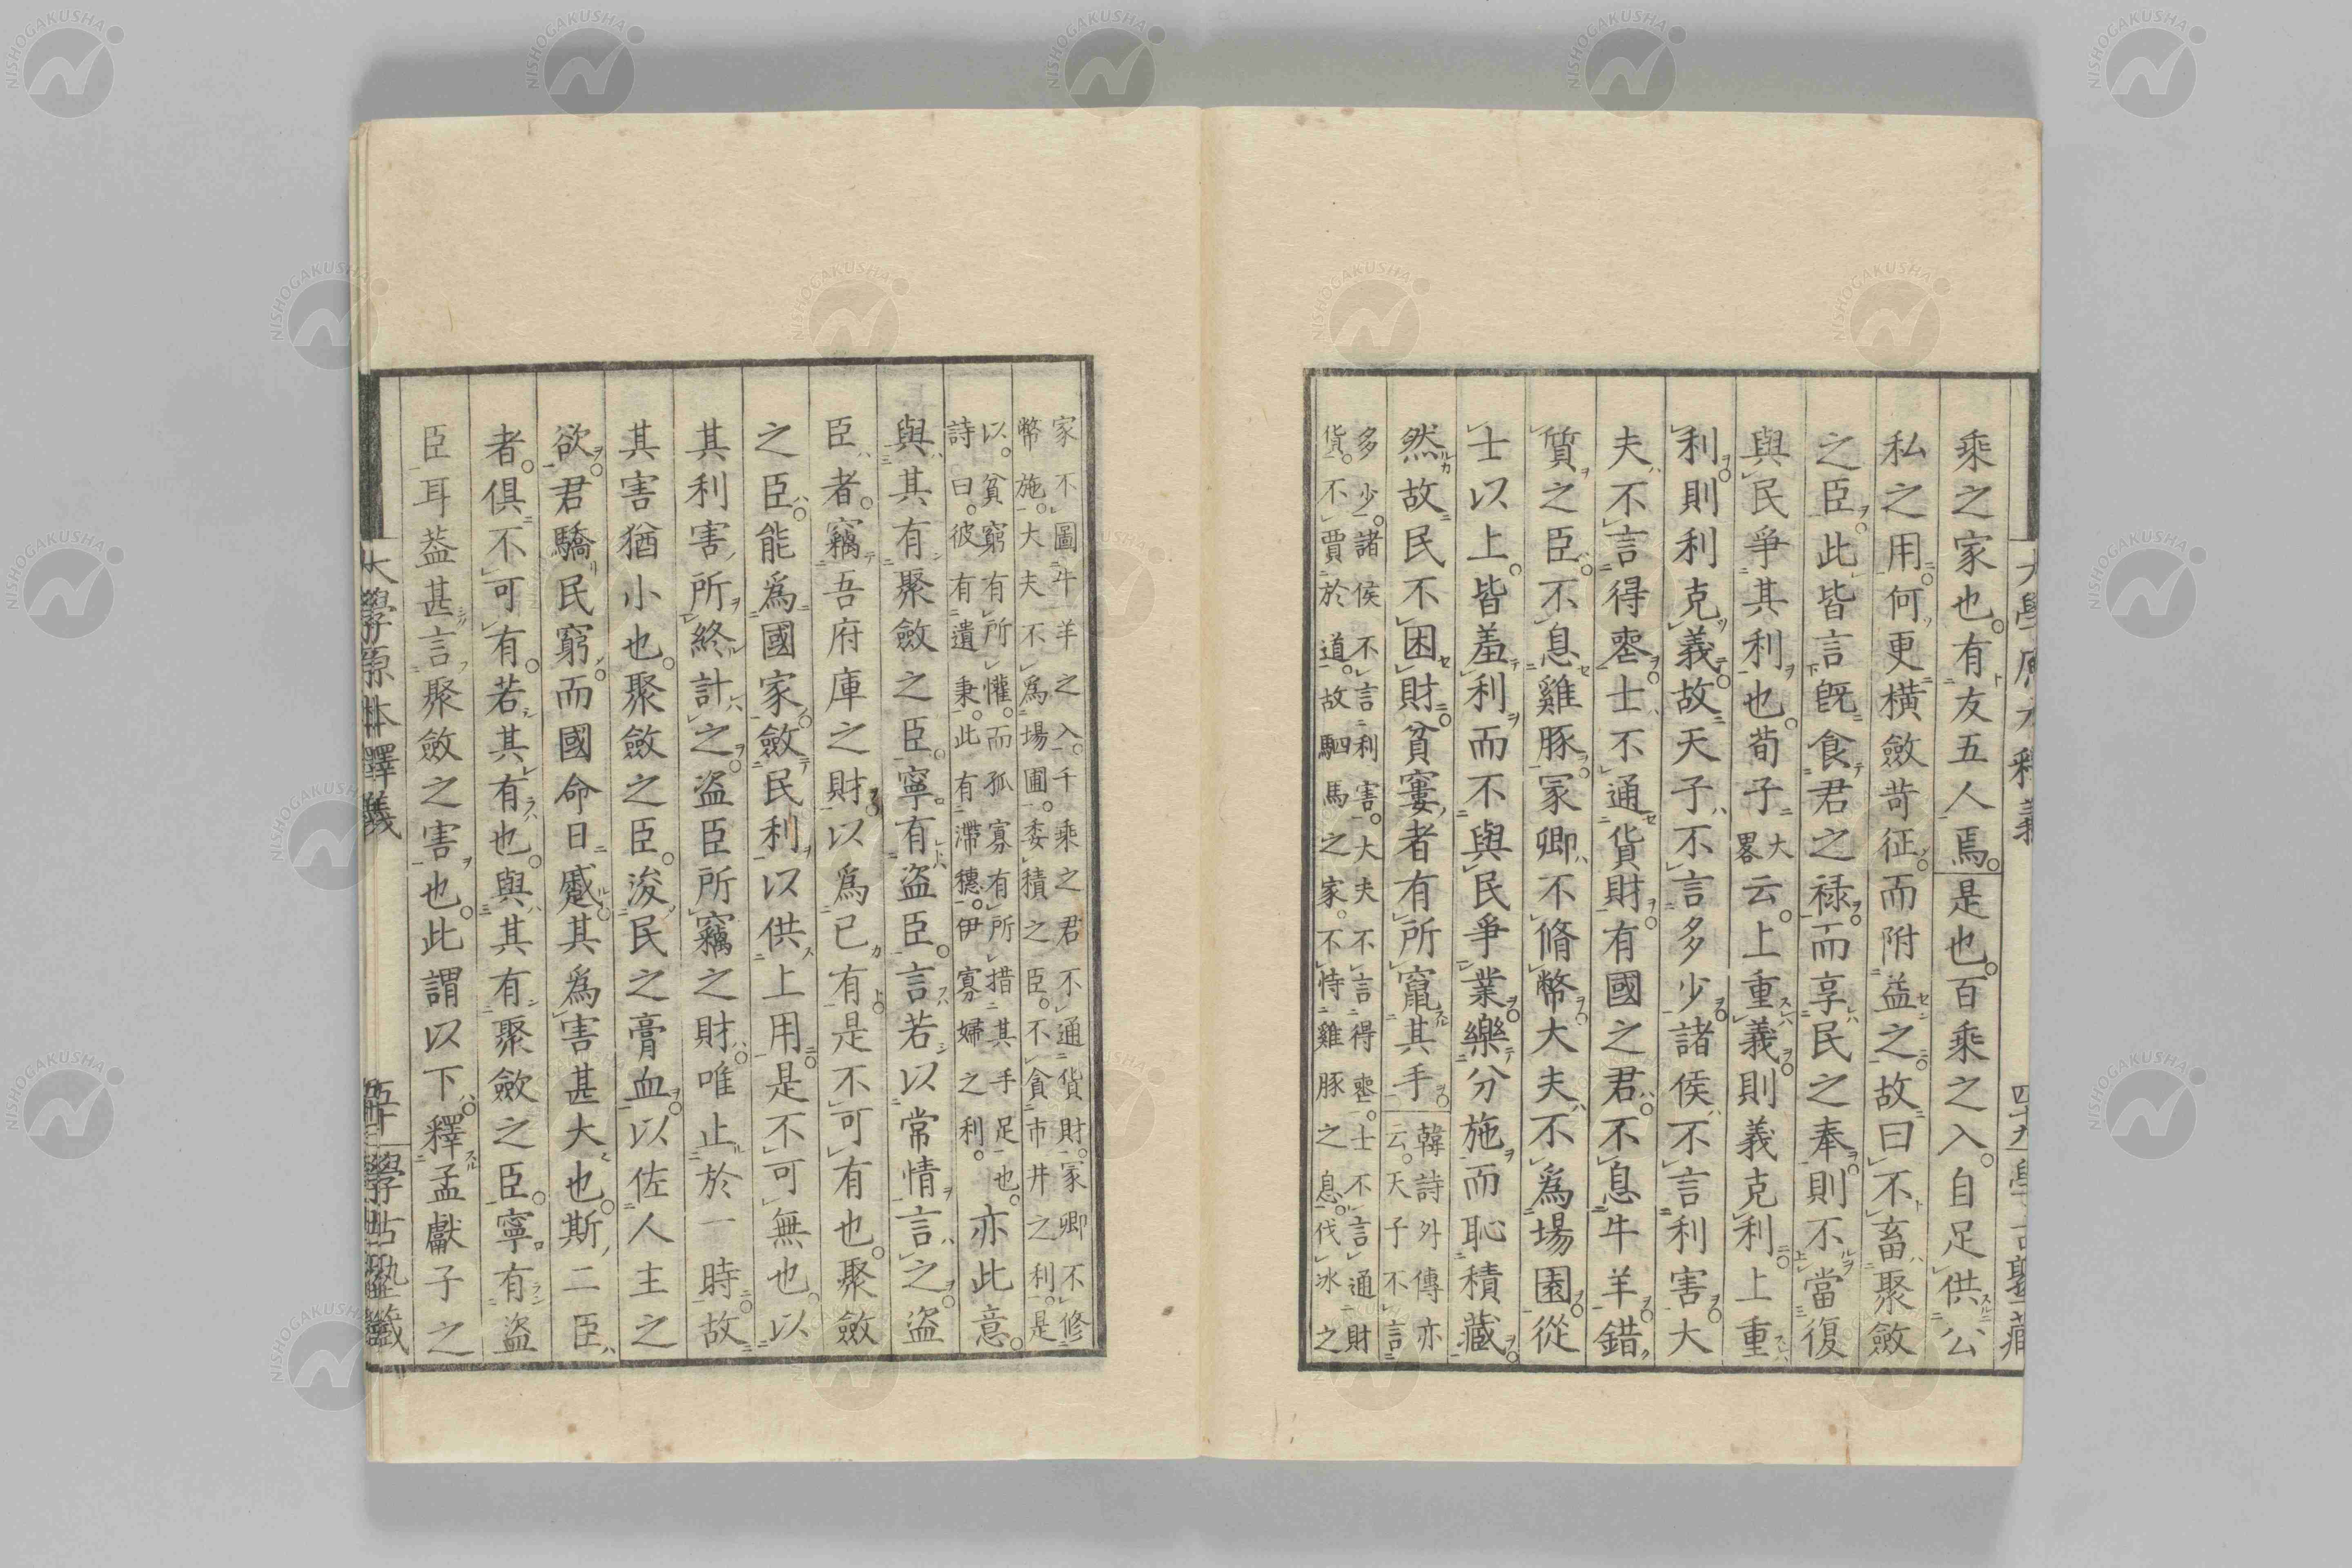 大學原本釋義 四十九 學古塾藏
乘之家也。有友五人焉。是也。百乘之入。自足供公
私之用。何更橫斂苛征。而附益之。故曰不畜聚斂
之臣。此皆言既食君之祿。而享民之奉。則不當復
與民爭其利也。荀子大畧云。上重義。則義克利。上重
利。則利克義。故天子不言多少。諸侯不言利害。大
夫不言得喪。士不通貨財。有國之君。不息牛羊。錯
質之臣。不息雞豚。冢卿不脩幣。大夫不爲場園。從
士以上。皆羞利而不與民爭業。樂分施而恥積藏。
然故民不困財。貧窶者有所竄其手。韓詩外傳亦
云。天子不言
多少。諸侯不言利害。大夫不言得喪。士不言通財
貨。不賈於道。故駟馬之家。不恃雞豚之息。伐冰之
家不圖牛羊之入。千乘之君不通貨財。冢卿不修
幣施。大夫不爲場圃。委積之臣。不貪市井之利。是
以。貧窮有所懽。而孤寡有所措其手足也。
詩曰。彼有遺秉。此有滯穗。伊寡婦之利。亦此意。
與其有聚斂之臣。寧有盜臣。言若以常情言之。盜
臣者。竊吾府庫之財。以爲已有。是不可有也。聚斂
之臣。能爲國家。斂民利以供上用。是不可無也。以
其利害所終計之。盜臣所竊之財。唯止於一時。故
其害猶小也。聚斂之臣。浚民之膏血。以佐人主之
欲。君驕民窮。而國命日蹙。其爲害甚大也。斯二臣
者。俱不可有。若其有也。與其有聚斂之臣。寧有盜
臣耳。葢甚言聚斂之害也。此謂以下。釋孟獻子之
大學原本釋義 五十 學古塾藏